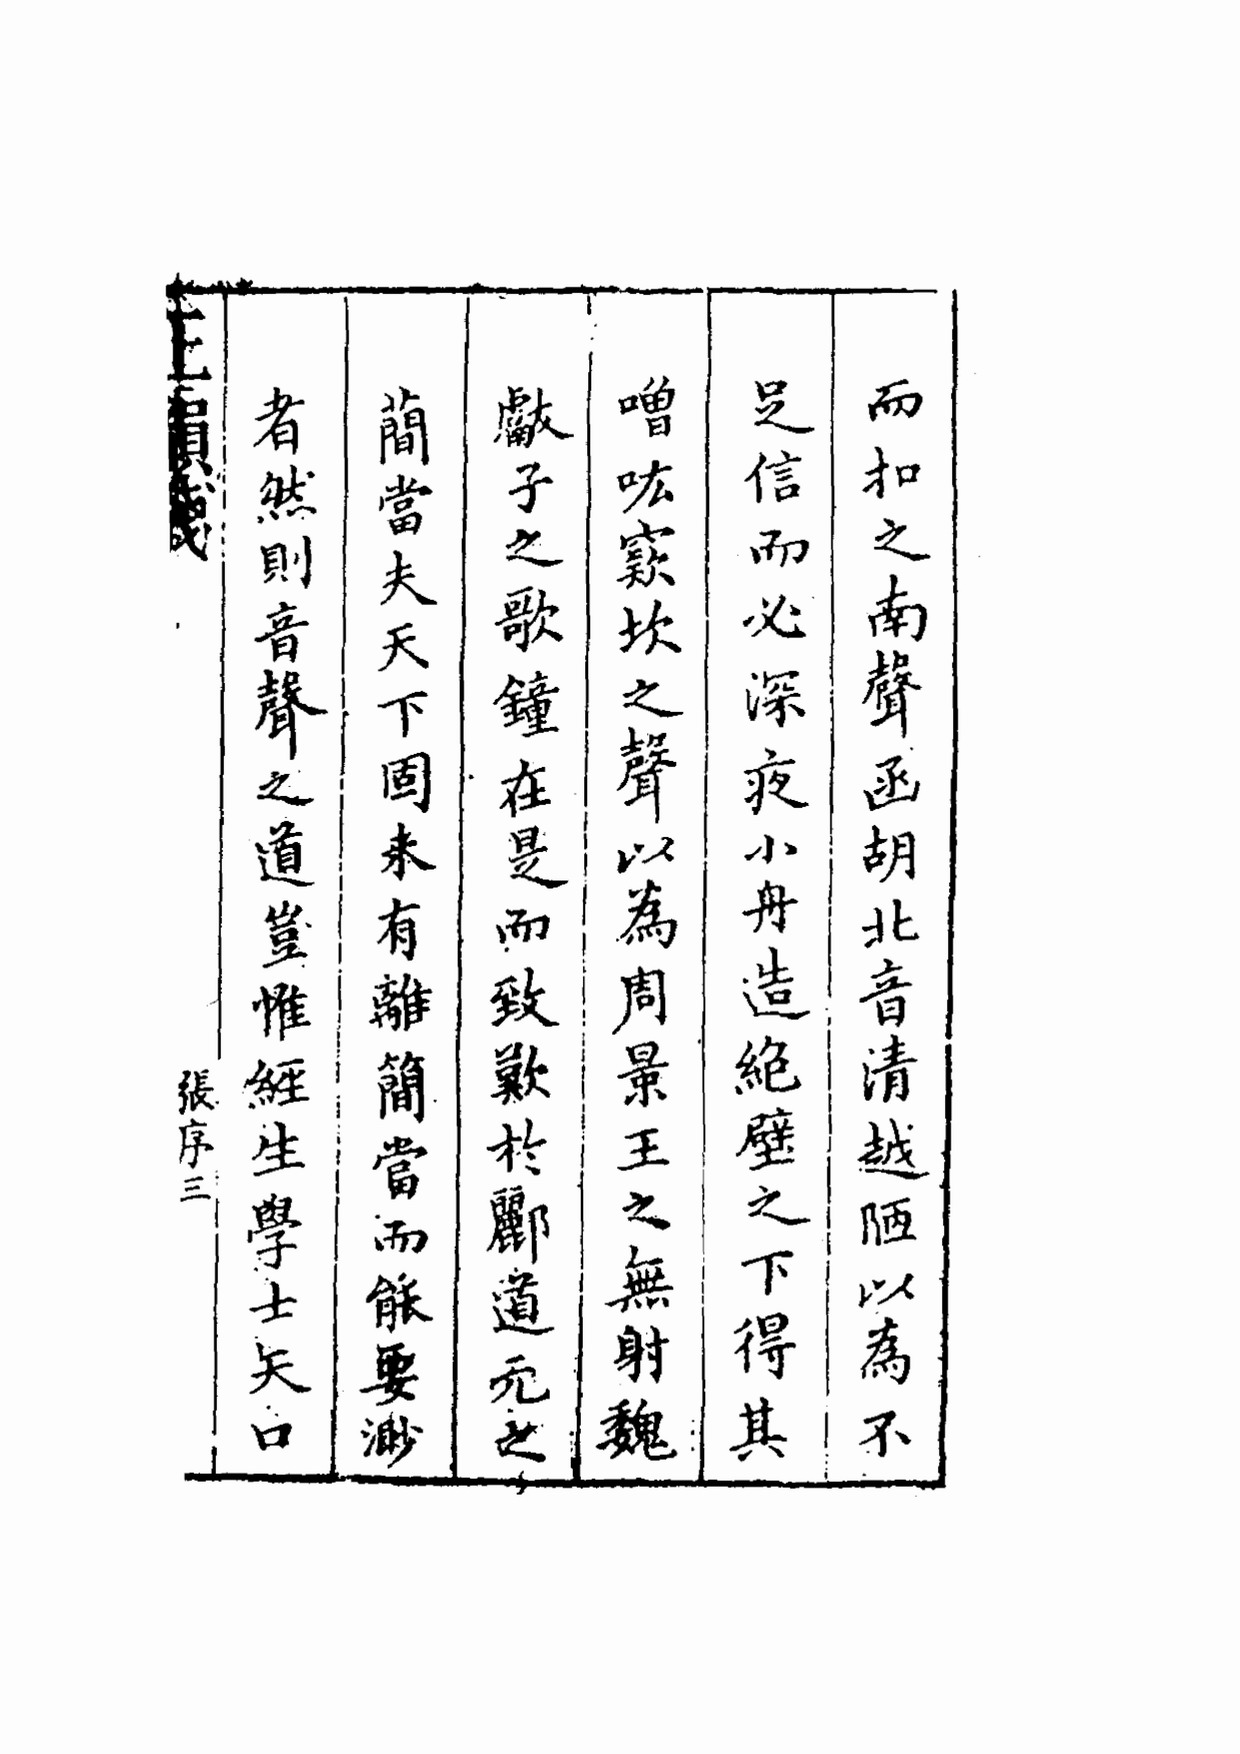 而扣之南聲函胡北音清越陋以為不
足信而必深夜小舟造絶壁之下得其
噌吰窾坎之聲以為周景王之無射魏
獻子之歌鐘在是而致歎於酈道元之
蕳當夫天下固未有離簡當而能要渺
者然則音聲之道豈惟經生學士矢口
張序三